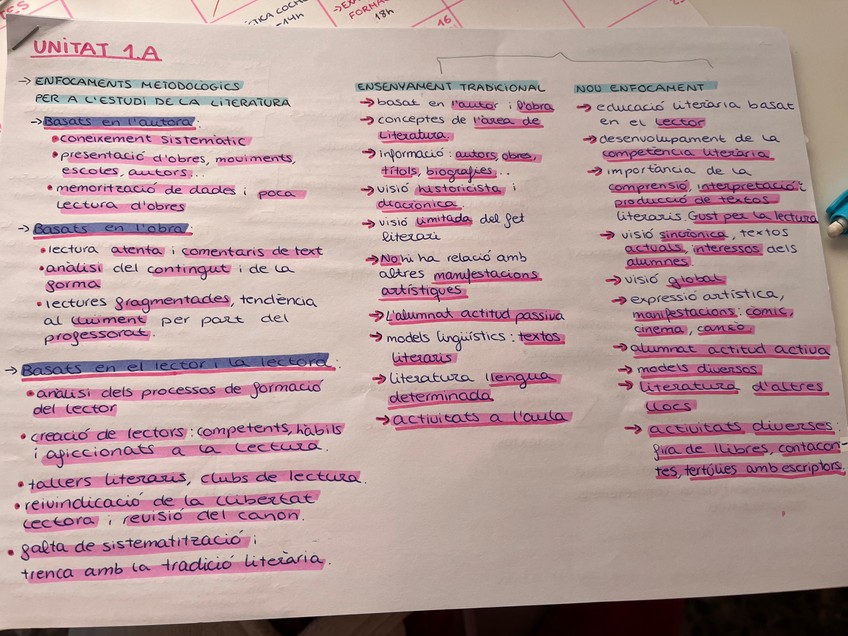 UNITAT 1.A
→ ENFOCAMENTS METODOLÒGICS
PER A L'ESTUDI DE LA LITERATURA
→ Basats en l'autora:
• coneixement sistemàtic
• presentació d'obres, moviments,
escoles, autors...
• memorització de dades i poca
lectura d'obres
→ Basats en l'obra:
• lectura atenta i comentaris de text
• anàlisi del contingut i de la
forma
• lectures fragmentades, tendència
al lluïment per part del
professorat.
→ Basats en el lector i la lectora:
• anàlisi dels processos de formació
del lector
• creació de lectors: competents, hàbils
i aficcionats a la lectura.
• tallers literaris, clubs de lectura.
• reivindicació de la llibertat
lectora i revisió del canon.
• falta de sistematització i
trenca amb la tradició literària.
ENSENYAMENT TRADICIONAL
→ basat en l'autor i l'obra
→ conceptes de l'àrea de
literatura.
→ informació: autors, obres,
títols, biografies...
→ visió historicista i
diacrònica.
→ visió limitada del fet
literari
→ No hi ha relació amb
altres manifestacions
artístiques
→ L'alumnat actitud passiva
→ models lingüístics: textos
literaris
→ literatura llengua
determinada
→ activitats a l'aula
NOU ENFOCAMENT
→ educació literària basat
en el lector
→ desenvolupament de la
competència literària
→ importància de la
comprensió, interpretació i
producció de textos
literaris Gust per la lectura
→ visió sincrònica, textos
actuals, interessos dels
alumnes.
→ visió global
→ expressió artística,
manifestacions: còmic,
cinema, cançó.
→ alumnat actitud activa
→ models diversos
→ literatura d'altres
llocs
→ activitats diverses:
fira de llibres, contacon-
tes, tertúlies amb escriptors.
-14h
FORMA
18h
16